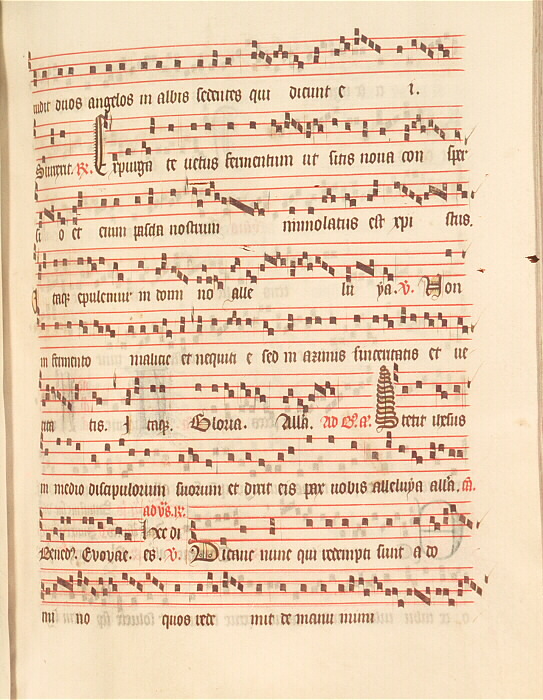 vidit duos angelos in albis sedentes qui dicunt e i.
Surrexit. R. Expurga te vetus fermentum ut sitis nova con sper
si o et enim pascha nostrum immolatus est xpi stus.
Itaque epulemur in domi no alle lu ya. V. Non
in fermento malicie et nequiti e sed in azimis sinceritatis et ve
rita tis. Itaque. Gloria. Alla. Ad Stetit ihesus
in medio discipulorum suorum et dixit eis pax vobis alleluya alla. m.
ad vs. R. Hec di
Bened. Evovae. es. V. Dicant nunc qui redempti sunt a do
mi no quos rede mit de manu inimi